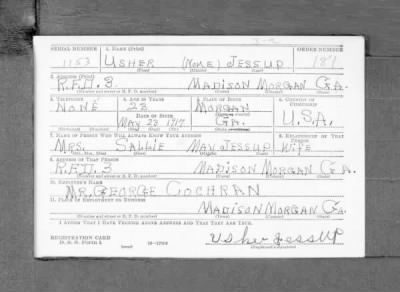 SERIAL NUMBER 1. NAME (Print) ORDER NUMBER
1153 USHER (NONE) JESSUP 181
(First) (Middle) (Last)
2. ADDRESS (Print)
R.F.D. 3. MADISON MORGAN GA.
(Number and street or R. F. D. number) (Town) (County) (State)
3. TELEPHONE 4. AGE IN YEARS 5. PLACE OF BIRTH 6. COUNTRY OF CITIZENSHIP
NONE 23 MORGAN
DATE OF BIRTH U.S.A.
MAY 23 1917 GA.
(Mo.) (Day) (Yr.) (State or country)
7. NAME OF PERSON WHO WILL ALWAYS KNOW YOUR ADDRESS 8. RELATIONSHIP OF THAT PERSON
MRS. SALLIE MAY JESSUP WIFE
(Mr., Mrs., Miss) (First) (Middle) (Last)
9. ADDRESS OF THAT PERSON
R.F.D. 3 MADISON MORGAN GA.
(Number and street or R. F. D. number) (Town) (County) (State)
10. EMPLOYER'S NAME
MR. GEORGE COCHRAN
11. PLACE OF EMPLOYMENT OR BUSINESS
MADISON MORGAN GA.
(Number and street or R. F. D. number) (Town) (County) (State)
I AFFIRM THAT I HAVE VERIFIED ABOVE ANSWERS AND THAT THEY ARE TRUE.
REGISTRATION CARD
D. S. S. Form 1 Usher Jessup
(Registrant's signature)